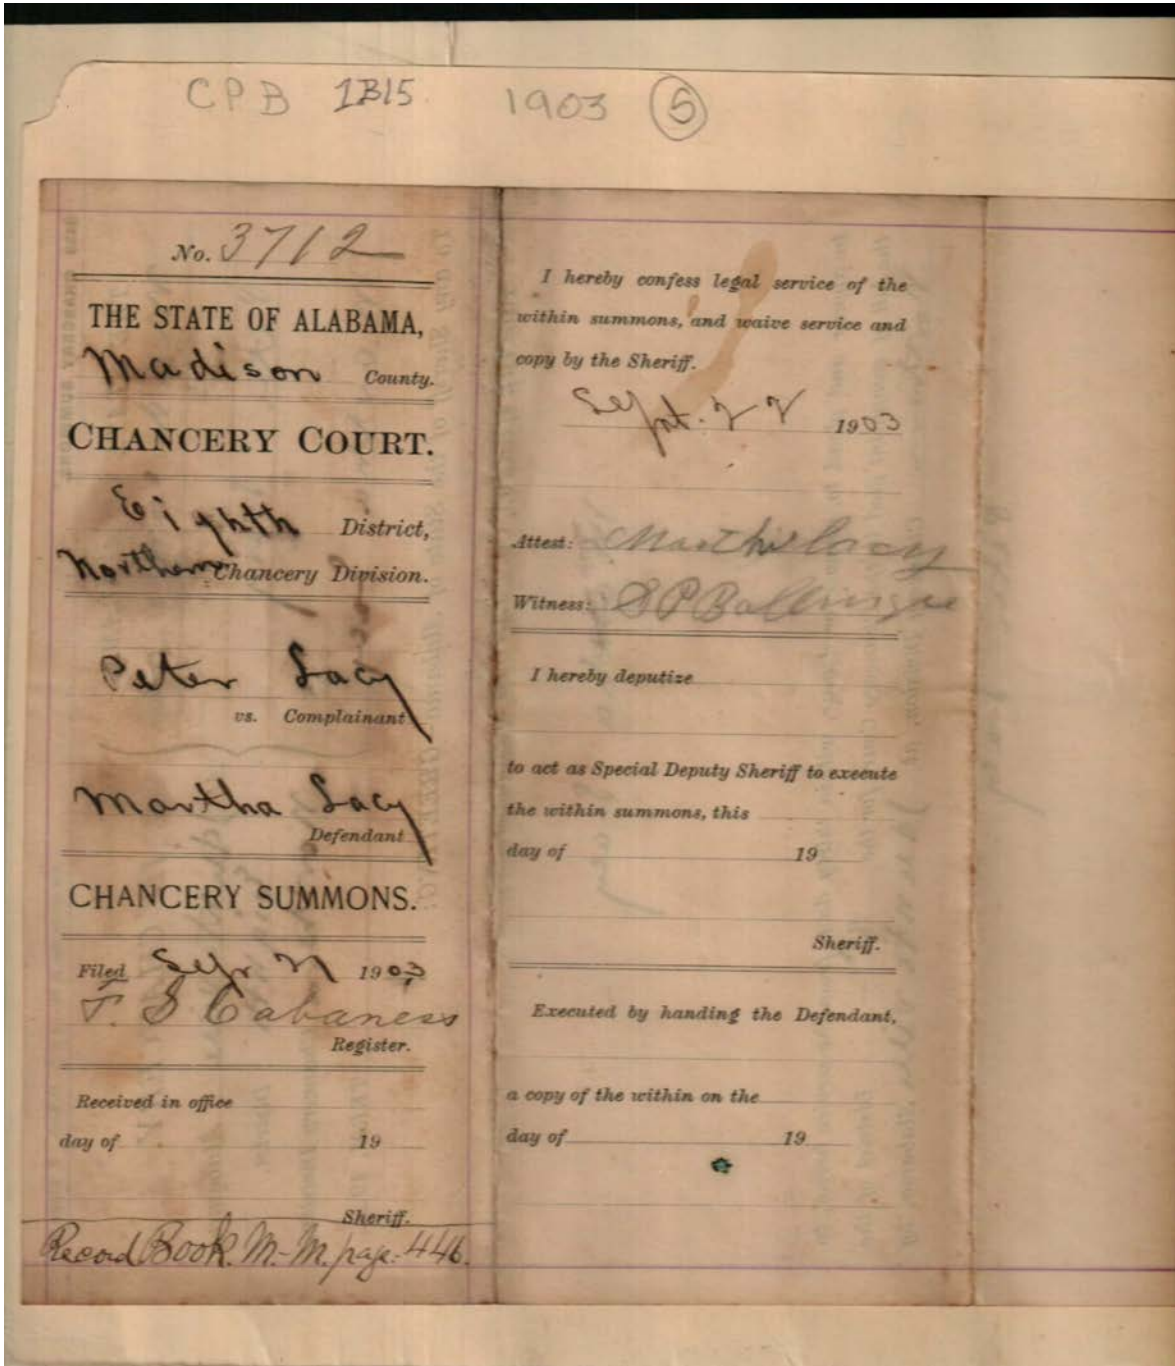 CPB 1B15 1903 5
No. 3712
THE STATE OF ALABAMA,
Madison County.
CHANCERY COURT.
Eighth District,
Northern Chancery Division.
Peter Lacy
vs. Complainant
Martha Lacy
Defendant
CHANCERY SUMMONS.
Filed 1903
Cabaness
Register.
Received in office
day of 19
Sheriff.
Record Book. M-M. page. 446.
I hereby confess legal service of the
within summons, and waive service and
copy by the Sheriff.
Sept. 22 1903
Attest: Martha Lacy
Witness:
I hereby deputize
to act as Special Deputy Sheriff to execute
the within summons, this
day of 19
Sheriff.
Executed by handing the Defendant,
a copy of the within on the
day of 19